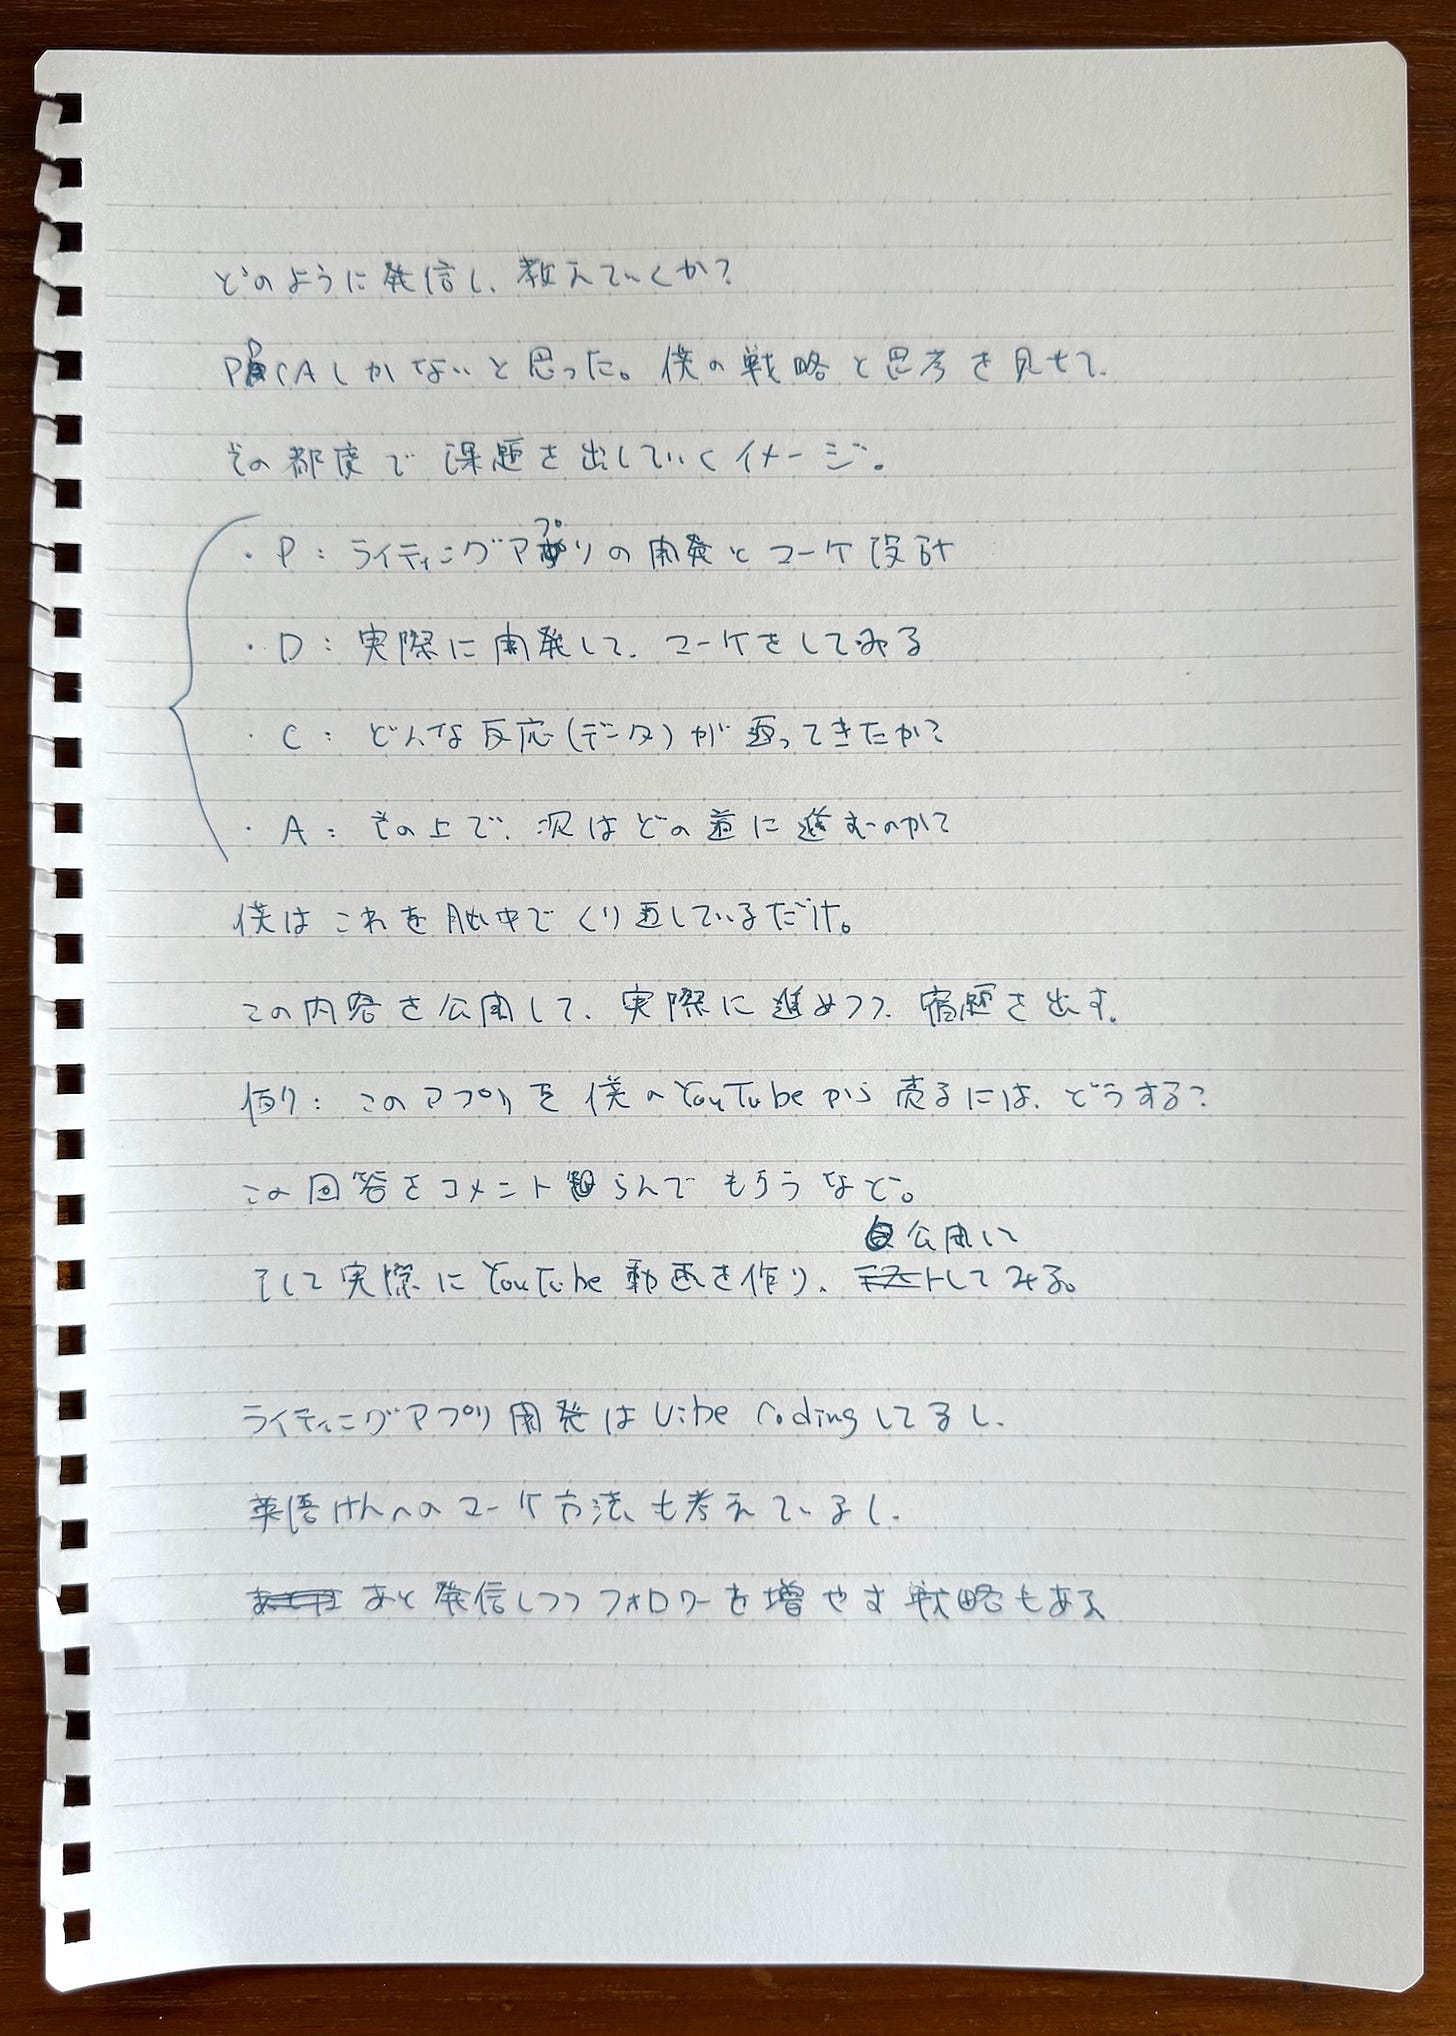 どのように発信し、教えていくか？
PDCAしかないと思った。僕の戦略と思考を見せて、
その都度で課題を出していくイメージ。
・P：ライティングアプリの開発とマーケ設計
・D：実際に開発して、マーケをしてみる
・C：どんな反応(データ)が返ってきたか？
・A：その上で、次はどの道に進むのか？
僕はこれを脳中でくり返しているだけ。
この内容を公開して、実際に進めつつ、宿題を出す。
例：このアプリを僕のYouTubeから売るには、どうする？
この回答をコメントらんでもらうなど。
公開して
そして実際にYouTube動画を作り、テストしてみる。
ライティングアプリ開発はVibe Codingしてるし、
英語けんへのマーケ方法も考えているし、
あと発信しつつフォロワーを増やす戦略もある